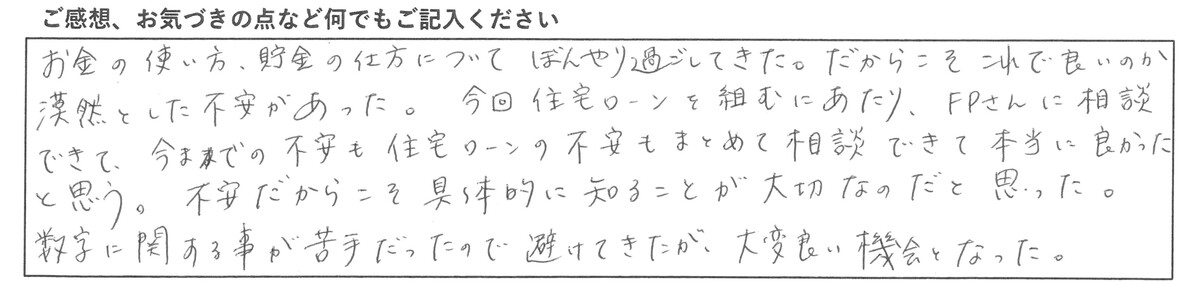 ご感想、お気づきの点など何でもご記入ください
お金の使い方、貯金の仕方について ぼんやり過ごしてきた。だからこそ これで良いのか
漠然とした不安があった。 今回 住宅ローンを組むにあたり、FPさんに相談
できて、今までの不安も住宅ローンの不安もまとめて相談できて本当に良かった
と思う。 不安だからこそ具体的に知ることが大切なのだと思った。
数字に関する事が苦手だったので避けてきたが、大変良い機会となった。